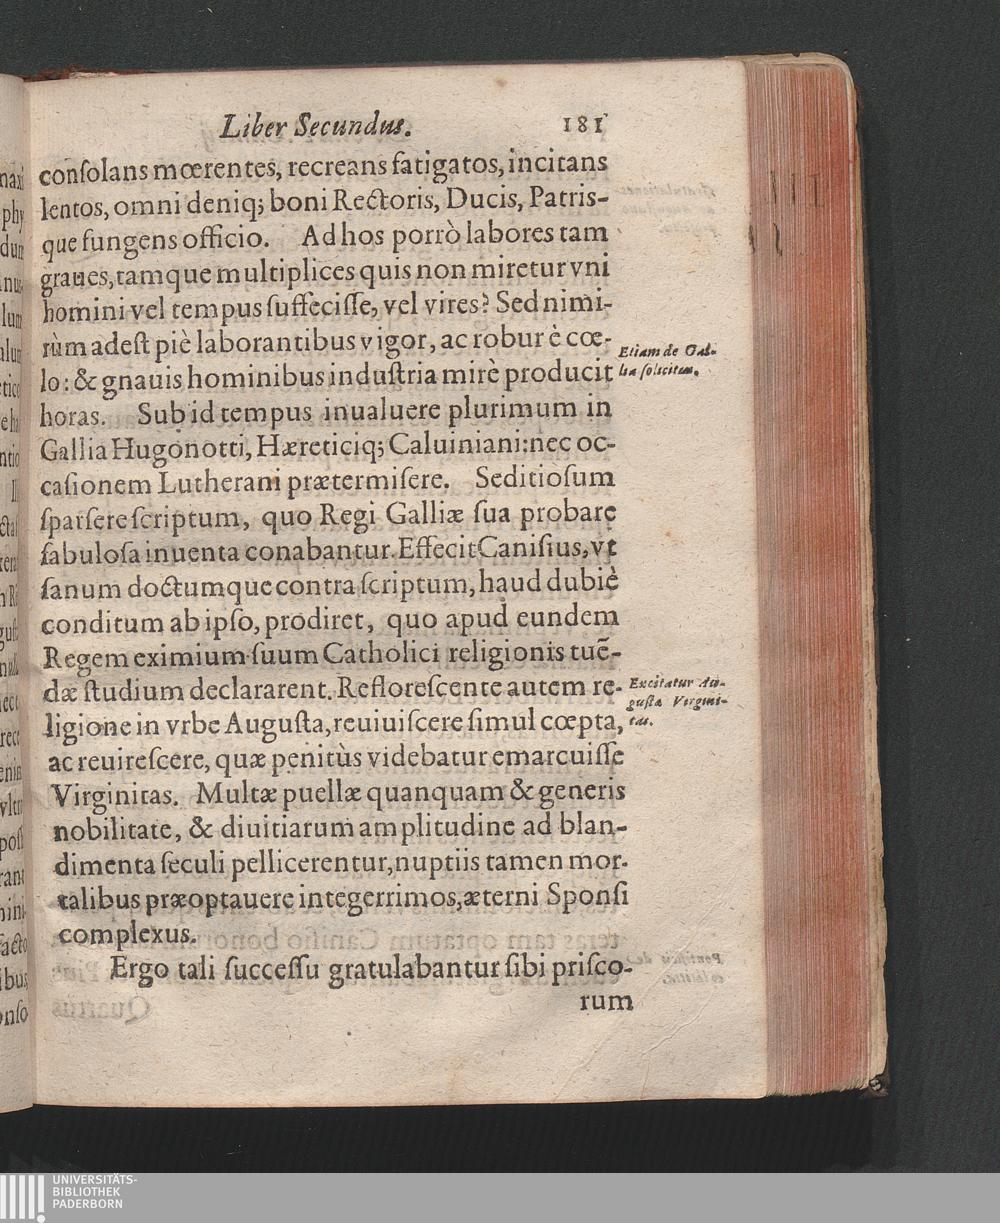 Liber Secundus. 181
conſolans mœrentes, recreans fatigatos, incitans
lentos, omni deniq; boni Rectoris, Ducis, Patris-
que fungens officio. Ad hos porrò labores tam
graues, tamque multiplices quis non miretur vni
homini vel tempus ſuffeciſſe, vel vires? Sed nimi-
rùm adeſt piè laborantibus vigor, ac robur è cœ-
Etiam de Gal-
lo: & gnauis hominibus induſtria mirè producit
lia ſolicitus.
horas. Sub id tempus inualuere plurimum in
Gallia Hugonotti, Hæreticiq; Caluiniani: nec oc-
caſionem Lutherani prætermiſere. Seditioſum
ſparſere ſcriptum, quo Regi Galliæ ſua probare
fabuloſa inuenta conabantur. Effecit Caniſius, vt
ſanum doctumque contra ſcriptum, haud dubiè
conditum ab ipſo, prodiret, quo apud eundem
Regem eximium ſuum Catholici religionis tuẽ-
dæ ſtudium declararent. Refloreſcente autem re-
Excitatur Au-
guſtæ Virgini-
ligione in vrbe Auguſta, reuiuiſcere ſimul cœpta,
tas.
ac reuireſcere, quæ penitùs videbatur emarcuiſſe
Virginitas. Multæ puellæ quanquam & generis
nobilitate, & diuitiarum amplitudine ad blan-
dimenta ſeculi pellicerentur, nuptiis tamen mor-
talibus præoptauere integerrimos, æterni Sponſi
complexus.
Ergo tali ſucceſſu gratulabantur ſibi priſco-
rum
naxi
phy
dum
nus
lum
alum
tico
ntio
ctaſ
guſt
rect
enim
vltr
poſſ
rant
acto
ibus
onſo
UNIVERSITÄTS-
BIBLIOTHEK
PADERBORN